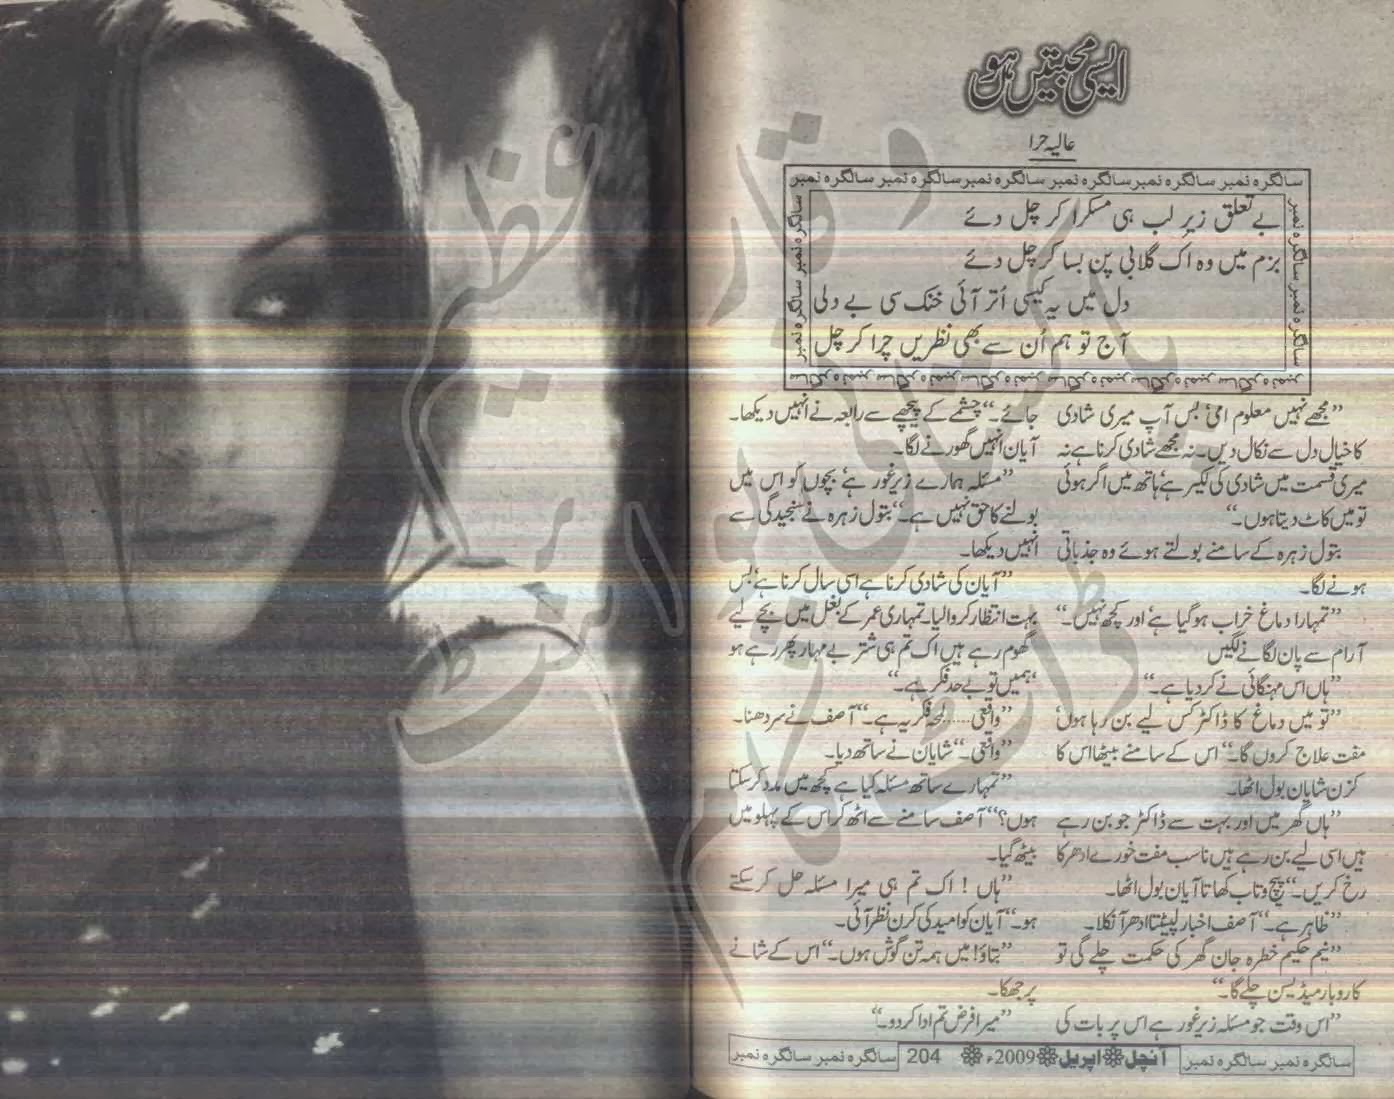 ایسی محبتیں ہو
عالیہ حرا
سالگرہ نمبر سالگرہ نمبر سالگرہ نمبر سالگرہ نمبر سالگرہ نمبر سالگرہ نمبر
بے تعلق زیر لب ہی مسکرا کر چل دئے
بزم میں وہ اک گلابی پن بسا کر چل دئے
دل میں یہ کیسی اُتر آئی خنک سی بے دلی
آج تو ہم اُن سے بھی نظریں چرا کر چل
”مجھے نہیں معلوم امی‘ بس آپ میری شادی
کا خیال دل سے نکال دیں۔ نہ مجھے شادی کرنا ہے نہ
میری قسمت میں شادی کی لکیر ہے‘ ہاتھ میں اگر ہوئی
تو میں کاٹ دیتا ہوں۔“
بتول زہرہ کے سامنے بولتے ہوئے وہ جذباتی
ہونے لگا۔
”تمہارا دماغ خراب ہو گیا ہے‘ اور کچھ نہیں۔“
آرام سے پان لگانے لگیں
”ہاں اس مہنگائی نے کر دیا ہے۔“
”تو میں دماغ کا ڈاکٹر کس لیے بن رہا ہوں‘
مفت علاج کروں گا۔“ اس کے سامنے بیٹھا اس کا
کزن شایان بول اٹھا۔
”ہاں گھر میں اور بہت سے ڈاکٹر جو بن رہے
ہیں اسی لیے بن رہے ہیں نا سب مفت خورے ادھر کا
رخ کریں۔“ پیچ و تاب کھاتا آیان بول اٹھا۔
”ظاہر ہے۔“ آصف اخبار لپیٹتا ادھر آ نکلا۔
”نیم حکیم خطرہ جان گھر کی حکمت چلے گی تو
کاروبار میڈیسن چلے گا۔“
”اس وقت جو مسئلہ زیر غور ہے اس پر بات کی
جائے۔“ چشمے کے پیچھے سے رابعہ نے انہیں دیکھا۔
آیان انہیں گھورنے لگا۔
”مسئلہ ہمارے زیر غور ہے‘ بچوں کو اس میں
بولنے کا حق نہیں ہے۔“ بتول زہرہ نے سنجیدگی سے
انہیں دیکھا۔
”آیان کی شادی کرنا ہے اسی سال کرنا ہے‘ بس
بہت انتظار کروا لیا۔ تمہاری عمر کے بغل میں بچے لیے
گھوم رہے ہیں اک تم ہی شتر بے مہار پھر رہے ہو
‘ہمیں تو بے حد فکر ہے۔“
”واقعی...... لمحہ فکریہ ہے۔“ آصف نے سر دھنا۔
”واقعی۔“ شایان نے ساتھ دیا۔
”تمہارے ساتھ مسئلہ کیا ہے کچھ میں مدد کر سکتا
ہوں؟“ آصف سامنے سے اٹھ کر اس کے پہلو میں
بیٹھ گیا۔
”ہاں! اک تم ہی میرا مسئلہ حل کر سکتے
ہو۔“ آیان کو امید کی کرن نظر آئی۔
”بتاؤ! میں ہمہ تن گوش ہوں۔“ اس کے شانے
پر جھکا۔
”میرا فرض تم ادا کر دو۔“
سالگرہ نمبر سالگرہ نمبر آنچل اپریل 2009ء 204 سالگرہ نمبر سالگرہ نمبر
وقار عظیم
پاکستانی پوائنٹ
ڈاٹ کام